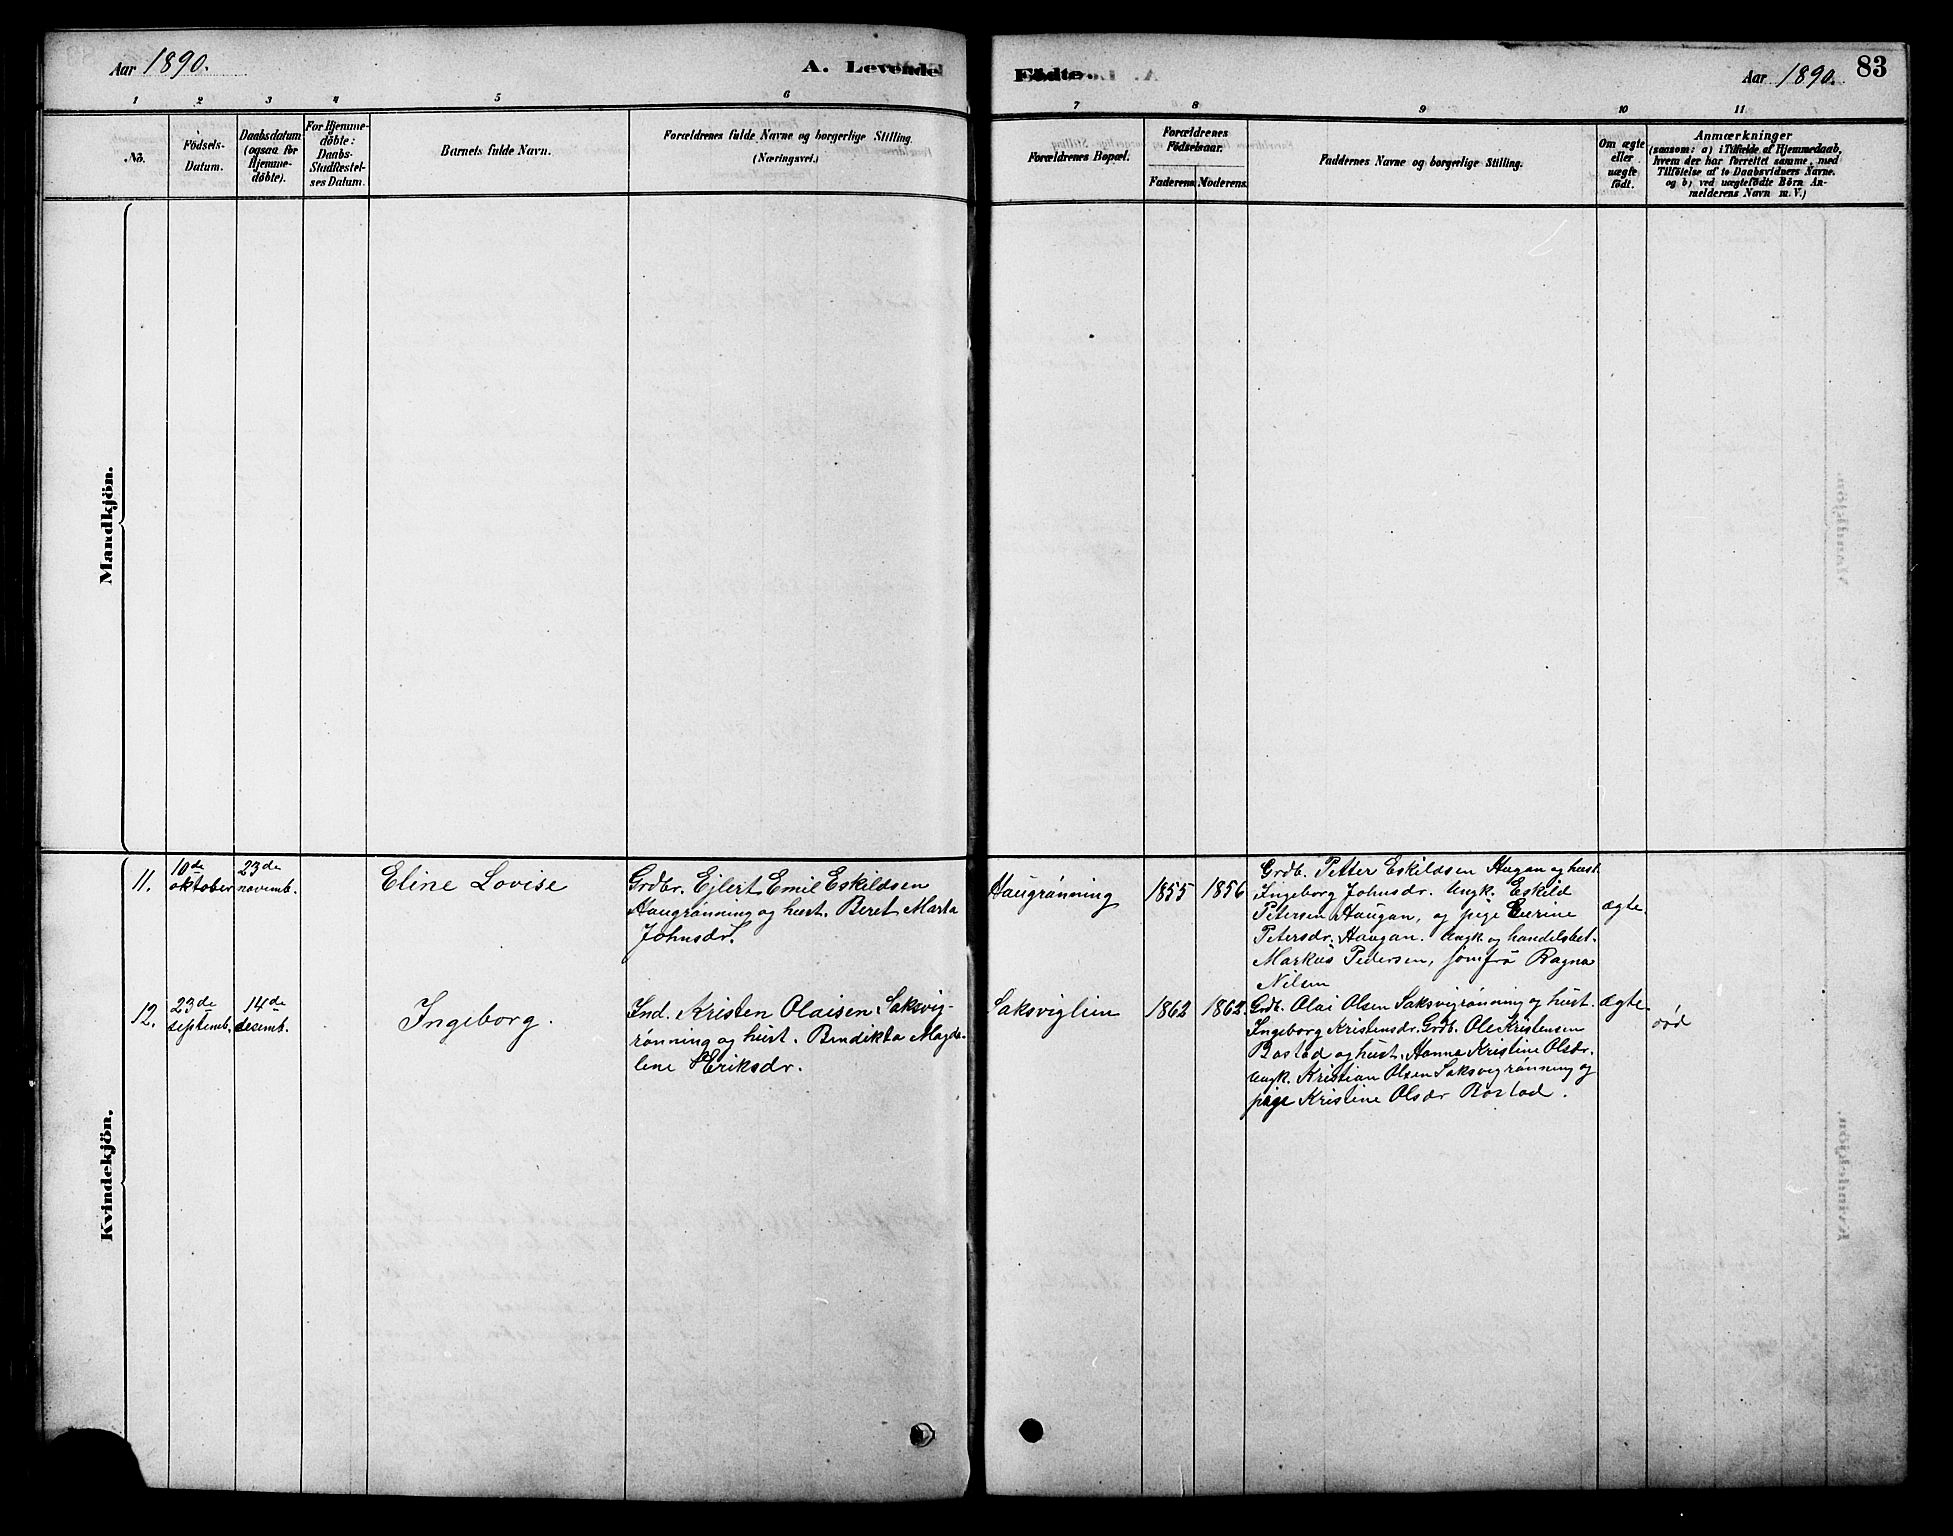 Aar 1890.
A. Levende
Födte.
Aar 1890.
83
1 2 3 4 5 6 7 8 9 10 11
No.
Födsels-
Datum.
Daabsdatum
(ogsaa for
Hjemme-
döbte).
For Hjemme-
döbte:
Daabs-
Stadfæstel-
ses Datum.
Barnets fulde Navn.
Forældrenes fulde Navne og borgerlige Stilling.
(Næringsvei.)
Forældrenes Bopæl.
Forældrenes
Födselsaar.
Faderens. Moderens.
Faddernes Navne og borgerlige Stilling.
Om ægte
eller
uægte
födt.
Anmærkninger
(saasom: a) i Tilfælde af Hjemmedaab,
hvem der har forrettet samme, med
Tilföielse af to Daabsvidners Navne,
og b) ved uægtefödte Börn An-
melderens Navn m. V.)
Mandkjön.
Kvindekjön.
11.
10de
oktober
23de
novemb.
Eline Lovise
Grdbr. Ejlert Emil Eskildsen
Haugrønning og hust. Beret Marta
Johnsdr.
Haugrønning
1855
1856
Grdb. Petter Eskildsen Haugan og hust.
Ingeborg Johnsdr. Ungk. Eskild
Petersen Haugan, og pige
Petersdr. Haugan. Ungk. og handelsbet.
Markus Pedersen, jomfru Ragna
Nilsen
ægte.
12.
23de
septemb.
14de
desemb.
Ingeborg.
Ind. Kristen Olaisen Saksvig-
rønning og hust. Bendikta Magda-
lene Eriksdr.
Saksviglien
1862
1862
Grdb. Olai Olsen Saksvigrønning og hust.
Ingeborg Kristensdr. Grdb. Ole Kristensen
Rostad og hust. Hanna Kristine Olsdr.
Ungk. Kristian Olsen Saksvigrønning og
pige Kristine Olsdr Rostad.
ægte.